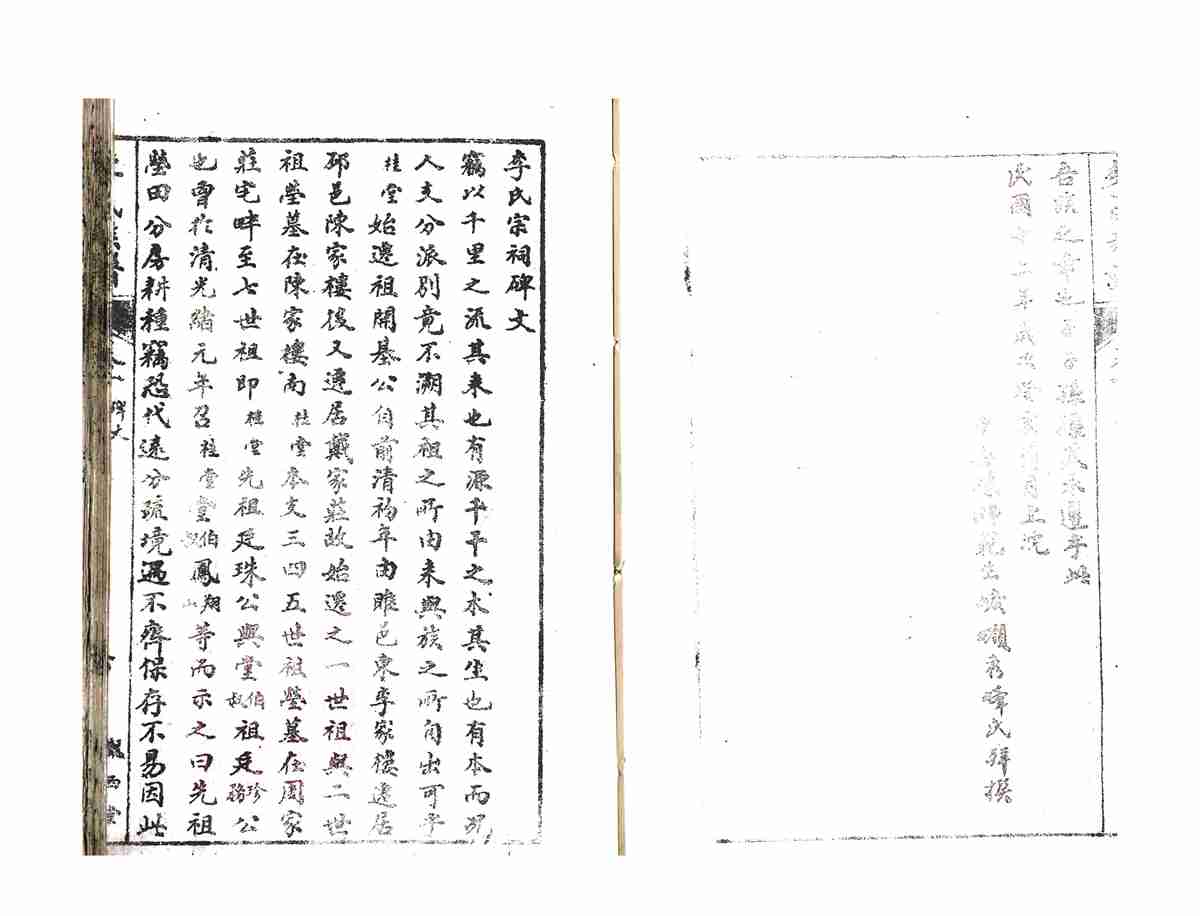 吾族之幸也 子子孫孫永遵乎此
民國十二年歲次癸亥 月上浣
師範生 峰氏拜撰
李氏宗祠碑文
竊以千里之流其來也有源千平之木其生也有本而况
人支分派别竟不溯其祖之所由來與族之所自出可乎
桂堂始遷祖開基公自前清初年由睢邑東李家樓遷居
邳邑陳家樓後又遷居戴家莊故始遷之一世祖與二世
祖塋墓在陳家樓南桂堂本支三四五世祖塋墓在周家
莊宅畔至七世祖即桂堂先祖廷珠公與堂伯叔祖廷珍務公
也曾於清光緒元年召桂堂堂伯叔鳳翔山等而示之曰先祖
塋田分房耕種竊恐代遠分疏境遇不齊保存不易因此
碑文
隴西堂